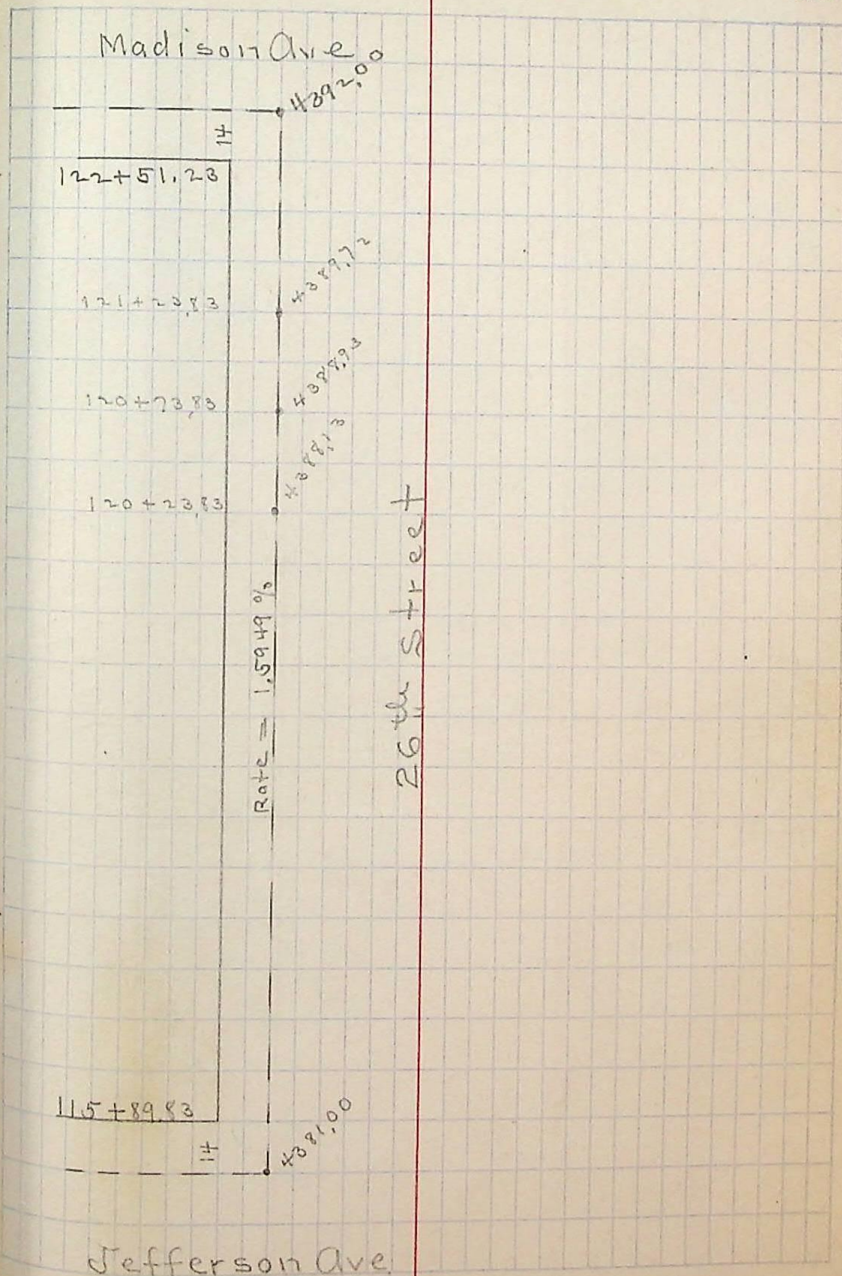 Madison Ave
4392.00
14
122+51.23
4389.72
121+23.83
4388.93
120+73.83
4388.13
120+23.83
Rate = 1.5949%
26th Street
115+89.83
14
4381.00
Jefferson Ave